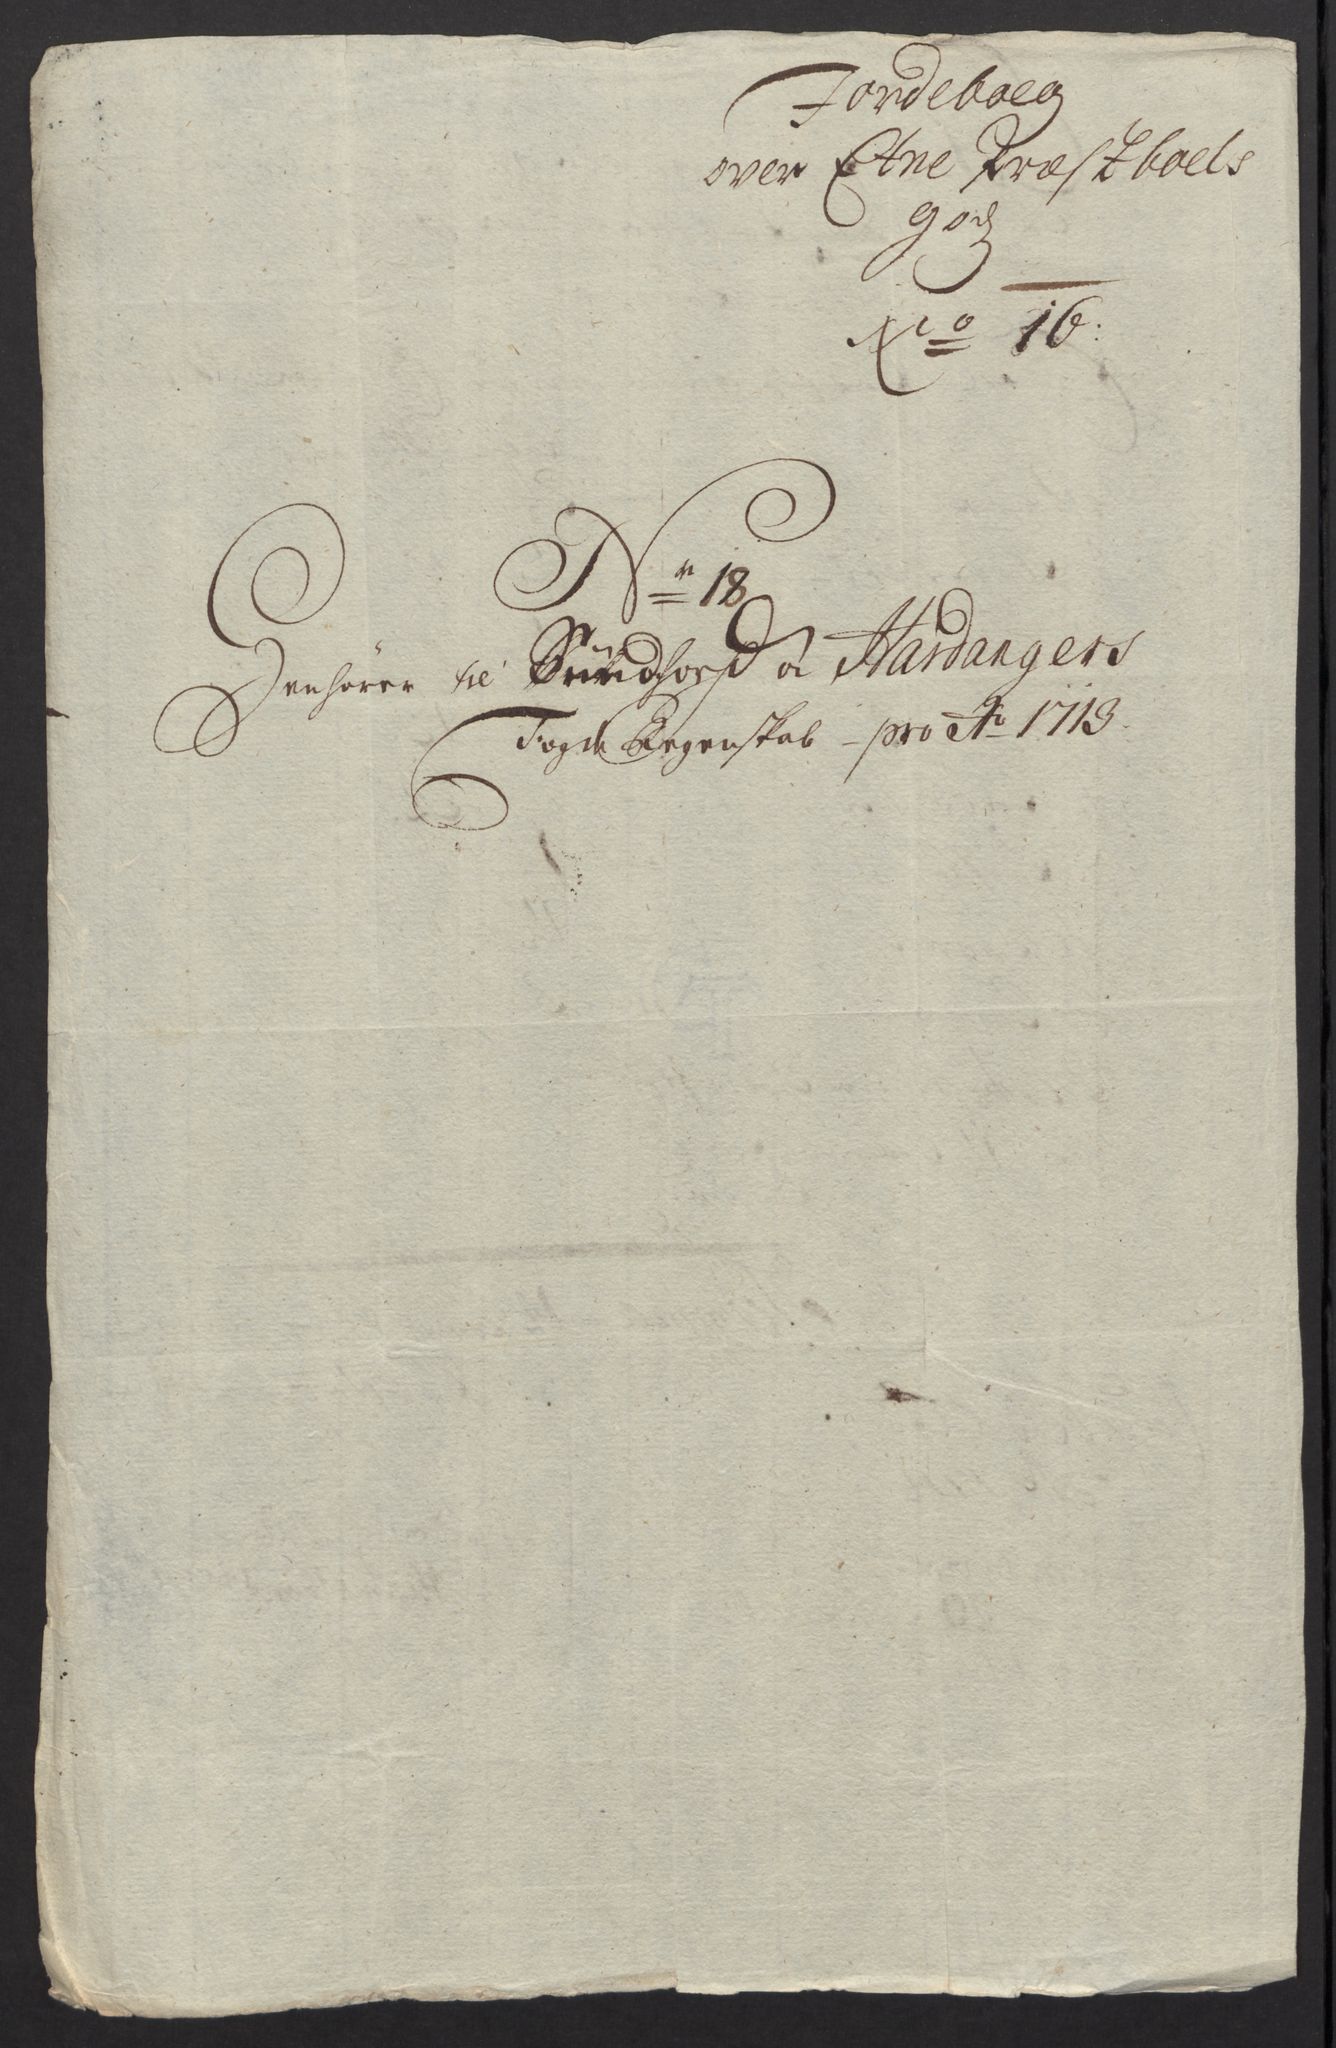 Jordeboeg
over Etne Præstboels
godz
No 16:
Nr 18
Henhører til Sundhorl: og Hardangers
Fogde Regenskab - pro Ao 1713.